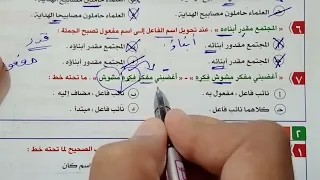 العلماء حاملون مصابيح الهداية. العلماء حاملون مصابيحا الهداية.
٦ « المجتمع مقدر أبناءه » ، عند تحويل اسم الفاعل إلى اسم مفعول تصبح الجملة :
المجتمع مقدر أبنائه.
المجتمع مقدر أبنائه. المجتمع مقدور أبناؤه.
أبناؤه
قدر
٧ « أغضبني مفكر مشوش فكره » - « أغضبني مفكر فكره مشوش » : ما تحته خط
نائب فاعل ، مفعول به نائب فاعل ، مضاف إليه
كلاهما نائب فاعل. نائب فاعل ، مبتدأ
٢
الصحيح لما تحته خط :
اسم كان